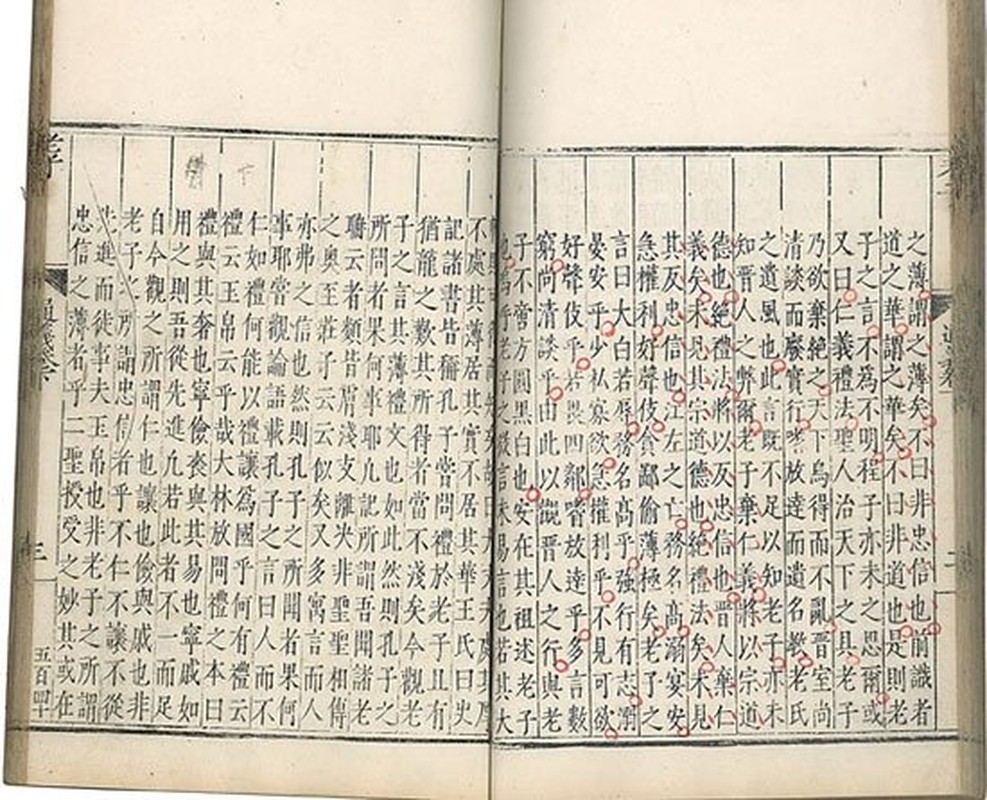 之薄謂之薄矣不曰非忠信也前識者
道之華謂之華矣不曰非道也是則老
子之言不為不明程子亦未之思爾或
又曰仁義禮法聖人治天下之具老子
乃欲棄絕之天下烏得而不亂晉室尚
清談而廢實行嗜放達而遺名教老氏
之遺風也此言既不足以知老子亦未
知晉人之弊爾老子棄仁義將以宗道
德也絕禮法將以反忠信也晉人棄仁
義矣未見其宗道德也絕禮法矣未見
其反忠信也江左之亡務名高溺宴安
急權利好聲伎貪鄙偷薄極矣老子之
言曰大白若辱務名高乎強行有志溺
晏安乎少私寡欲急權利乎不見可欲
好聲伎乎若畏四鄰嗜放達乎多言數
窮尚清談乎由此以觀晉人之行與老
子不啻方圓黑白也安在其祖述老子
也言也若其大
不處其薄居其實不居其華王氏曰史
記諸書皆稱孔子嘗問禮於老子且有
猶龍之歎其所得者當不淺矣今觀老
子之言其薄禮文也如此然則孔子之
所問者果何事耶凡記所謂吾聞諸老
聃云者類皆膚淺支離決非聖聖相傳
之奧王莊子云云似矣又多寓言而人
亦弗之信也然則孔子之所聞者果何
事耶嘗觀論語載孔子之言曰人而不
仁如禮何能以禮讓為國乎何有禮云
禮云玉帛云乎哉大林放問禮之本曰
禮與其奢也寧儉喪與其易也寧戚如
用之則吾從先進凡若此者不一而足
自今觀之所謂仁也讓也儉與戚也非
老子之所謂忠信者乎不仁不讓不從
先進而徒事夫玉帛也非老子之所謂
忠信之薄者乎二聖授受之妙其或在
三
五百四十